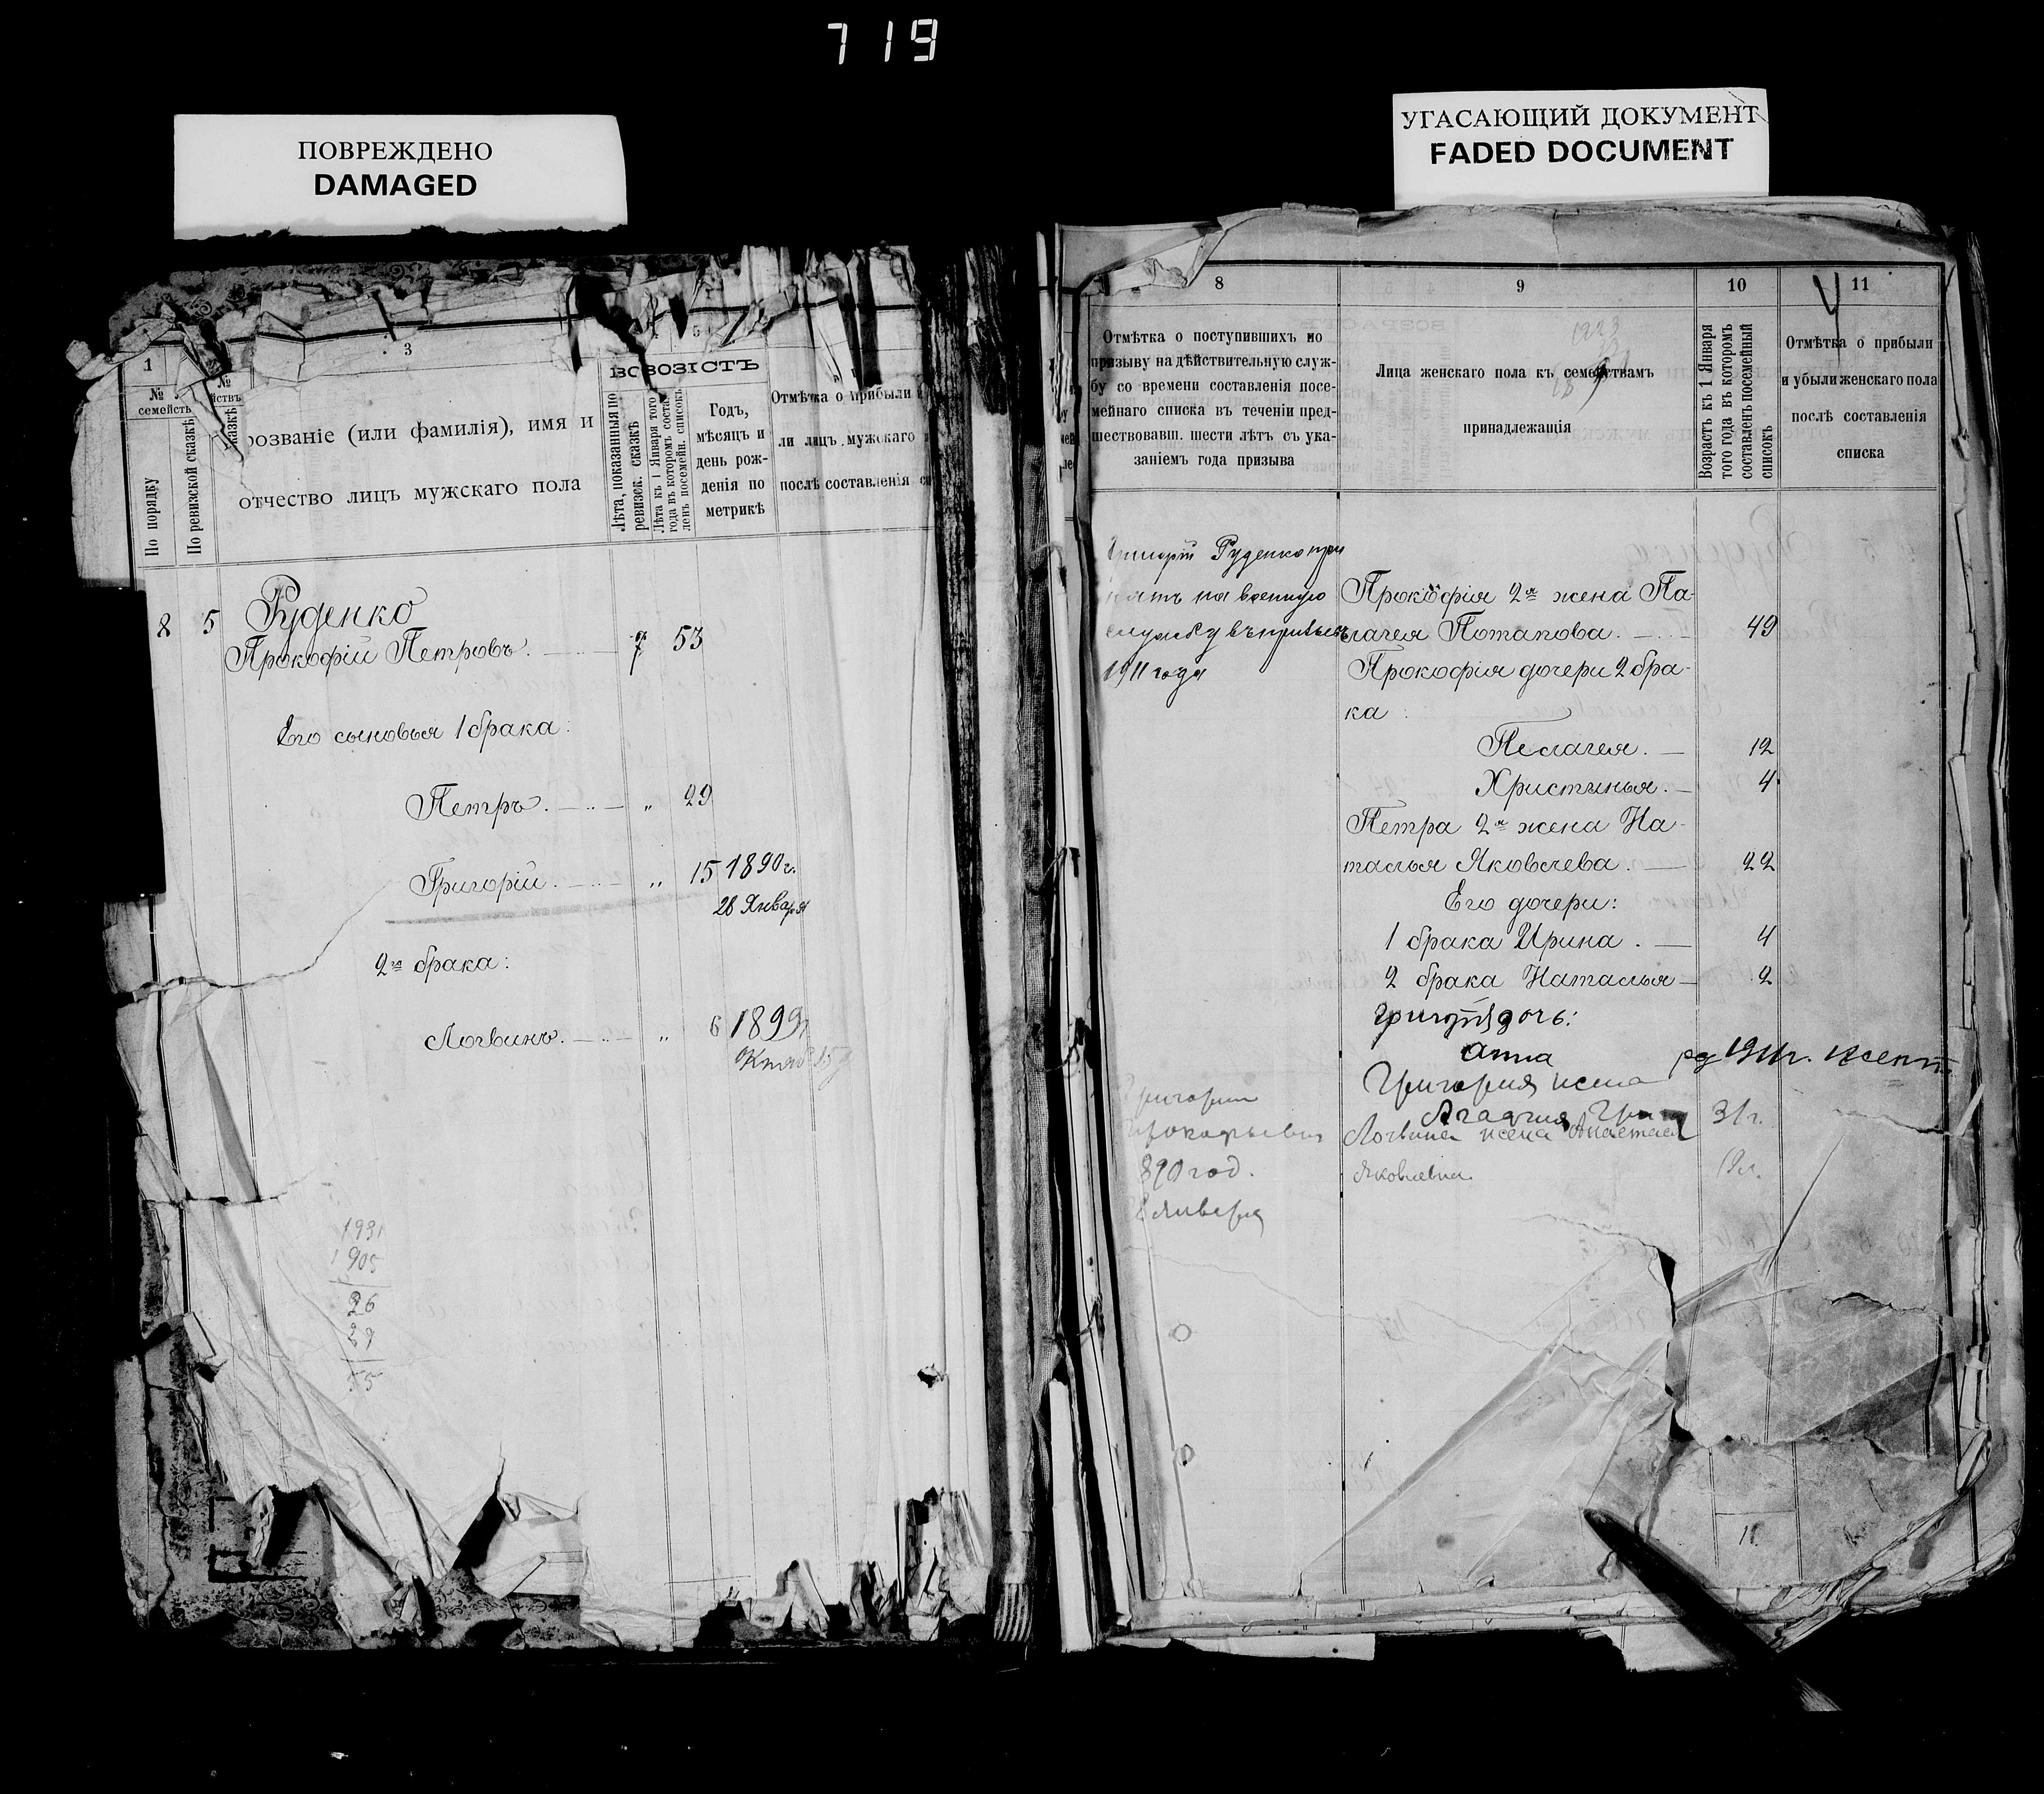 719
ПОВРЕЖДЕНО
DAMAGED
УГАСАЮЩИЙ ДОКУМЕНТ
FADED DOCUMENT
1
3
5
№
семейств
По порядку
По ревизской сказкѣ
розваніе (или фамилія), имя и
отчество лицъ мужскаго пола
Лѣта, показанныя по
ревизск. сказкѣ
Лѣта къ 1 Января того
года въ которомъ состав
ленъ посемейн. списокъ
Годъ,
мѣсяцъ и
день рож-
денія по
метрикѣ
Отмѣтка о прибыли и
ли лицъ мужскаго
послѣ составленія
8 5 Руденко
Прокофій Петровъ. 7 53
Его сыновья 1 брака:
Петръ. " 29
Григорій. " 15 1890 г.
28 Января
2го брака:
Логвинъ. " 6 1899
1931
1905
26
29
55
8
9
10
11
Отмѣтка о поступившихъ по
призыву на дѣйствительную служ-
бу со времени составленія посе-
мейнаго списка въ теченіи пред-
шествовавш. шести лѣтъ съ ука-
заніемъ года призыва
Лица женскаго пола къ семействамъ
принадлежащія
Возрастъ къ 1 Января
того года въ которомъ
составленъ посемейный
списокъ
Отмѣтка о прибыли
и убыли женскаго пола
послѣ составленія
списка
1923
Руденко при
на военную
службу въ призывъ
1911 года
Прокофія 2я жена Па-
лагея Потапова. 49
Прокофія дочери 2 бра-
ка:
Пелагея. 12
Христинья. 4
Петра 2я жена На-
талья Яковлева. 22
Его дочери:
1 брака Ирина. 4
2 брака Наталья 2
Григорія дочь:
Анна
Григория жена
Агафия 31 г.
Логвина жена Анастас
Яковлевна 19 л.
Григорий
Прокофьевич
890 год.
Января